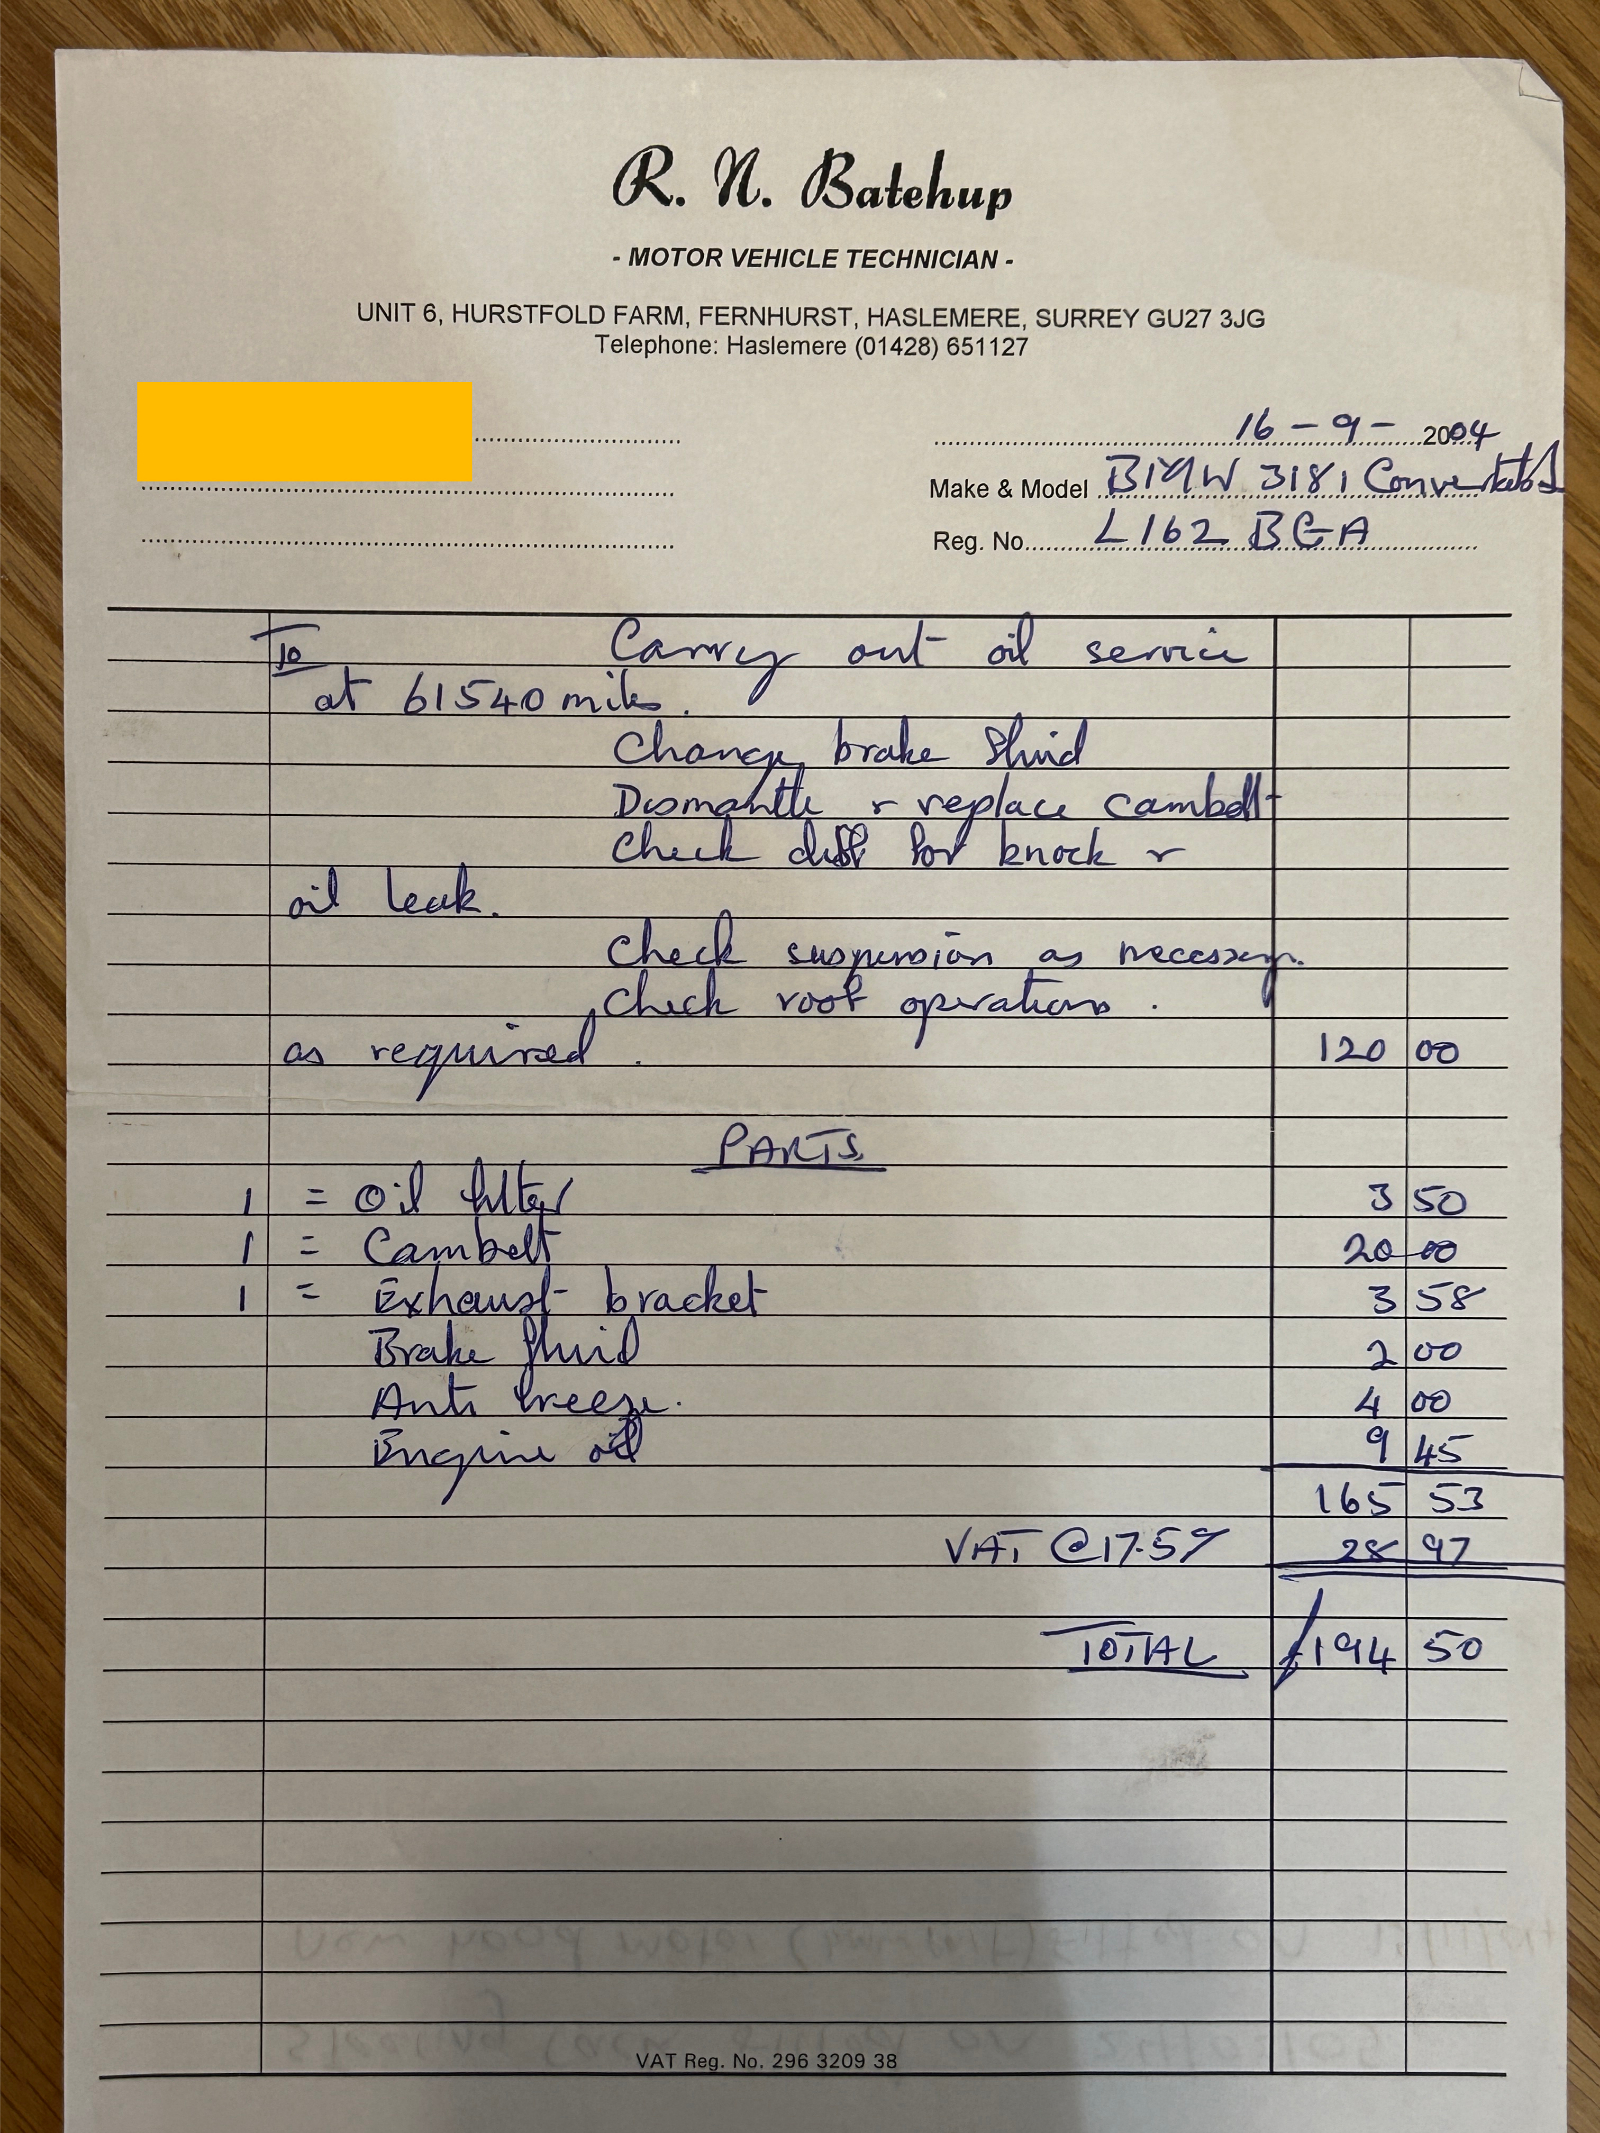 R. N. Batehup
- MOTOR VEHICLE TECHNICIAN -
UNIT 6, HURSTFOLD FARM, FERNHURST, HASLEMERE, SURREY GU27 3JG
Telephone: Haslemere (01428) 651127
16 - 9 - 2004
Make & Model BMW 318i Convertible
Reg. No. L162 BGA
To Carry out oil service
at 61540 miles.
Change brake fluid
Dismantle & replace cambelt
Check diff for knock &
oil leak.
Check suspension as necessary.
Check roof operations.
as required. 120 00
PARTS
1 = Oil filter 3 50
1 = Cambelt 20 00
1 = Exhaust bracket 3 58
Brake fluid 2 00
Anti freeze. 4 00
Engine oil 9 45
165 53
VAT @ 17.5% 28 97
TOTAL £194 50
VAT Reg. No. 296 3209 38